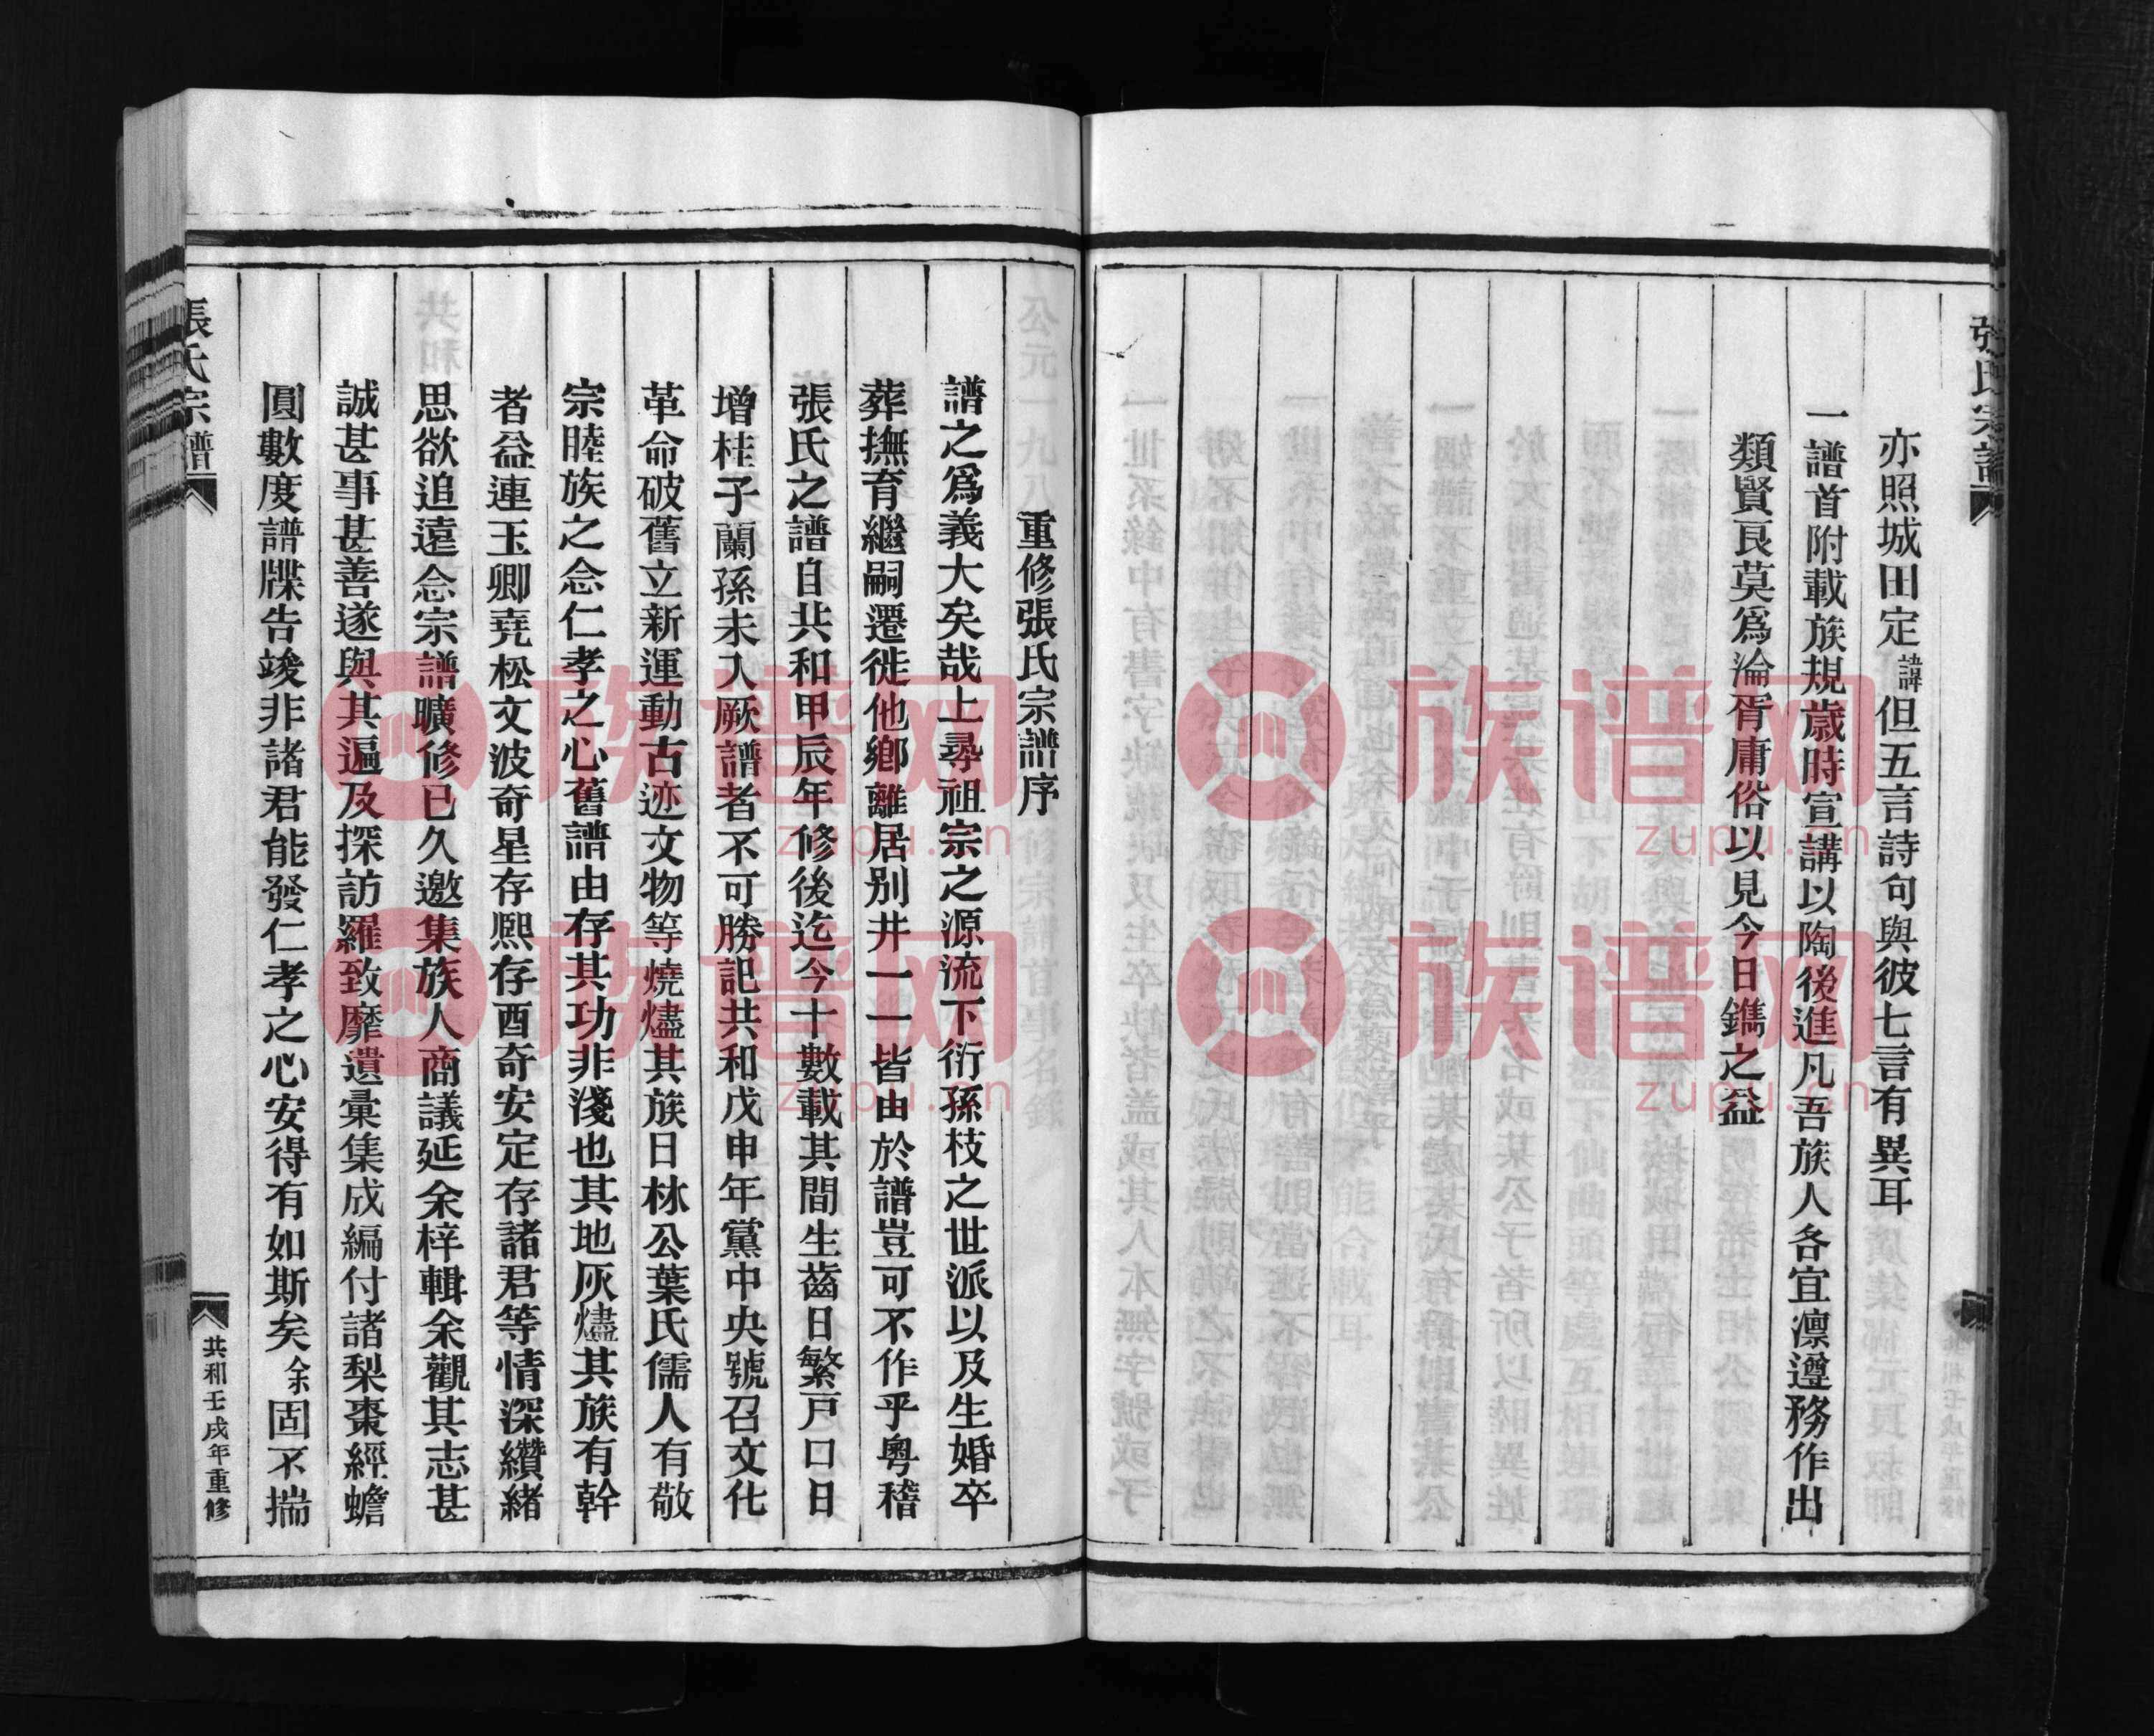 張氏宗譜
亦照城田定諱但五言詩句與彼七言有異耳
一譜首附載族規歲時宣講以陶後進凡吾族人各宜凛遵務作出
類賢良莫爲淪胥庸俗以見今日鐫之益
重修張氏宗譜序
譜之爲義大矣哉上尋祖宗之源流下衍孫枝之世派以及生婚卒
葬撫育繼嗣遷徙他鄉離居别井一一皆由於譜豈可不作乎粤稽
張氏之譜自共和甲辰年修後迄今十數載其間生齒日繁戸口日
增桂子蘭孫未入厥譜者不可勝記共和戊申年黨中央號召文化
革命破舊立新運動古迹文物等燒燼其族日林公葉氏儒人有敬
宗睦族之念仁孝之心舊譜由存其功非淺也其地灰燼其族有幹
者益連玉卿堯松文波奇星存熙存酉奇安定存諸君等情深纘緒
思欲追遠念宗譜曠修已久邀集族人商議延余梓輯余觀其志甚
誠甚事甚善遂與其遍及探訪羅致靡遺彙集成編付諸梨棗經蟾
圓數度譜牒告竣非諸君能發仁孝之心安得有如斯矣余固不揣
張氏宗譜
共和壬戌年重修
族谱网
zupu.cn
族谱网
zupu.cn
族谱网
zupu.cn
族谱网
zupu.cn